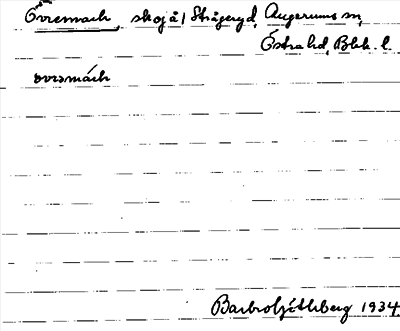 Övremach, skog å Strågeryd, Augerums sn,
Östra hd, Blek. l.
øvrəmách
Barbro Götlberg 1934